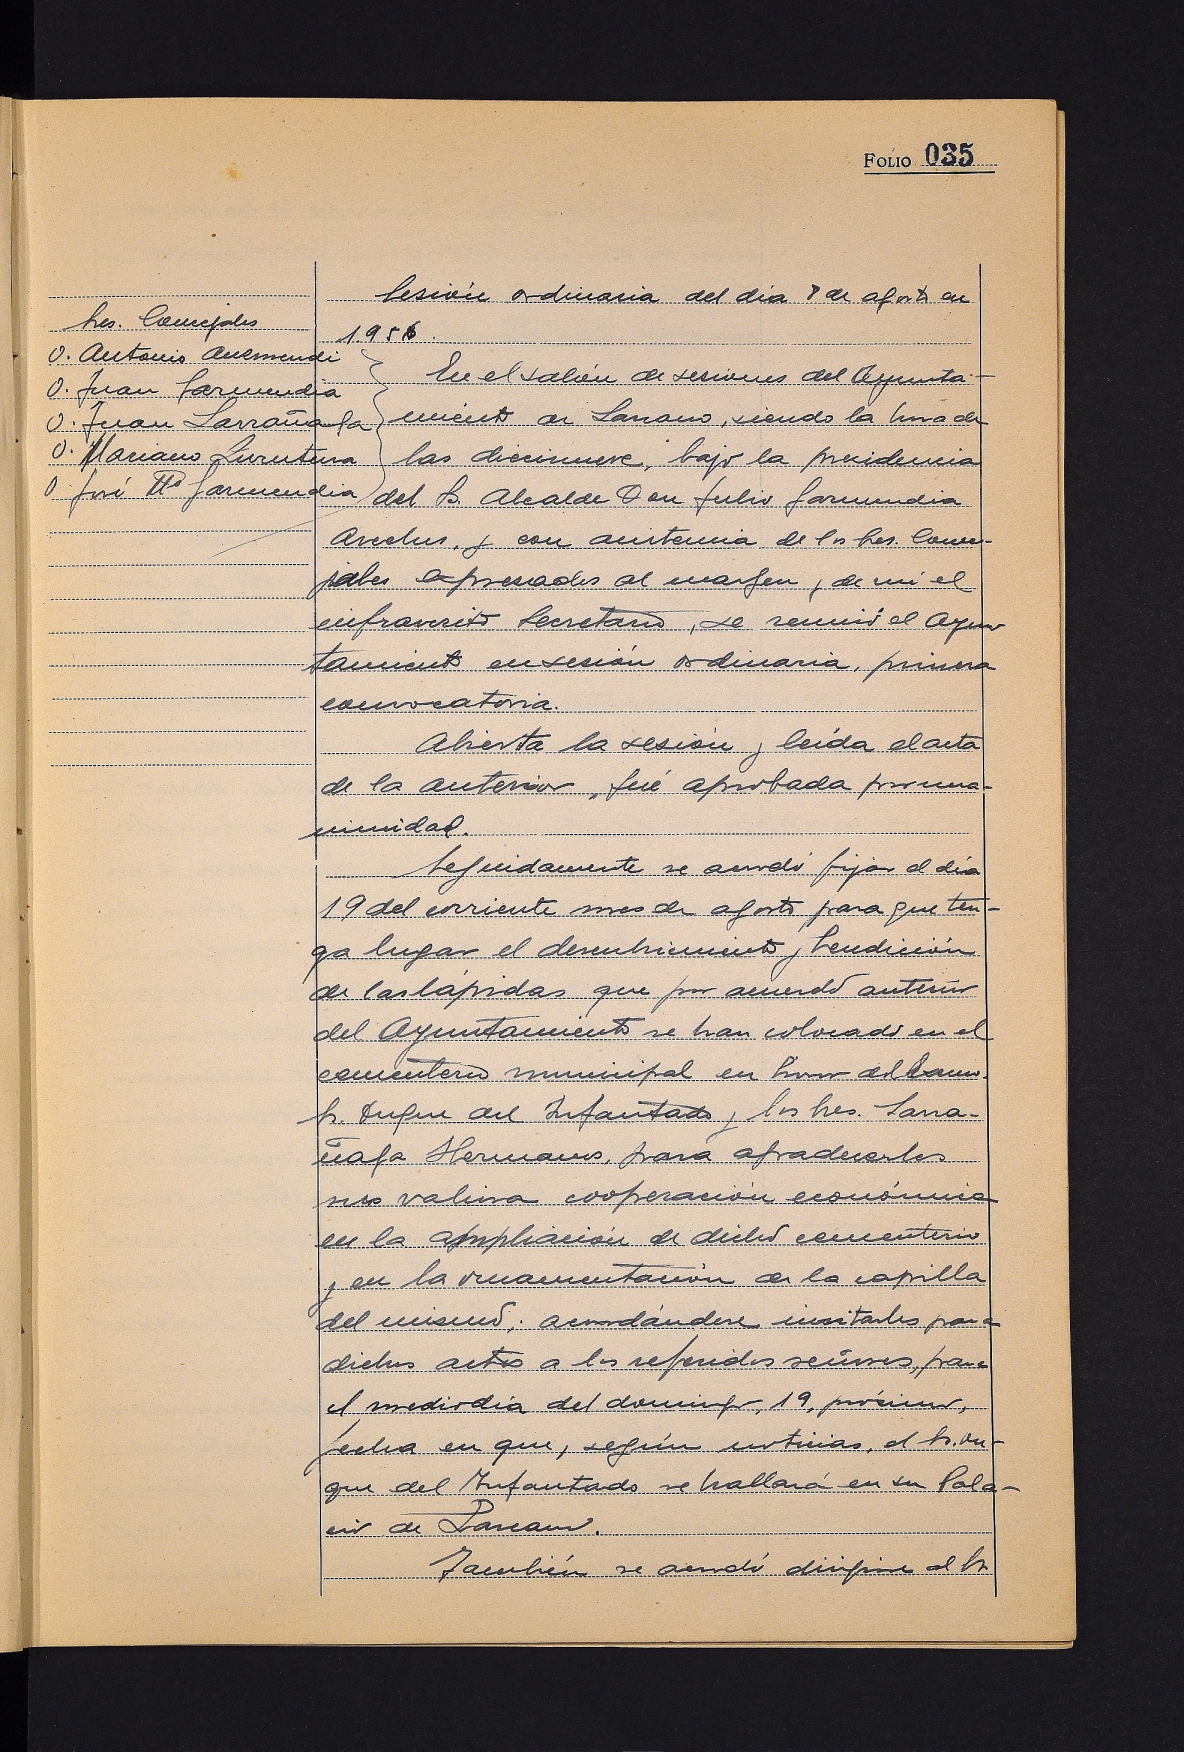 FOLIO 035
Sesión ordinaria del día 8 de agosto de
1.956.
Sres. Concejales
D. Antonio
D. Juan Garmendia
D. Juan Larrañaga
D. Mariano
D. José Mª Garmendia
En el salón de sesiones del Ayunta-
miento de Lazcano, siendo la hora de
las diecinueve, bajo la presidencia
del Sr. Alcalde Don Julio Garmendia
Arcelus, y con asistencia de los Sres. Conce-
jales expresados al margen, de mi el
infrascrito Secretario, se reunió el Ayun-
tamiento en sesión ordinaria, primera
convocatoria.
Abierta la sesión y leída el acta
de la anterior, fué aprobada por una-
nimidad.
Seguidamente se acordó fijar el día
19 del corriente mes de agosto para que ten-
ga lugar el descubrimiento y bendición
de las lápidas que por acuerdo anterior
del Ayuntamiento se han colocado en el
cementerio municipal en honor del Excmo.
Sr. Duque del Infantado y los Sres. Larra-
ñaga Hermanos, para agradecerles
su valiosa cooperación económica
en la ampliación de dicho cementerio
y en la ornamentación de la capilla
del mismo; acordándose invitarles para
dichos actos a los referidos señores, para
el mediodía del domingo, 19, próximo,
fecha en que, según noticias, el Sr. Du-
que del Infantado se hallará en su Pala-
cio de Lazcano.
También se acordó dirigirse al Sr.